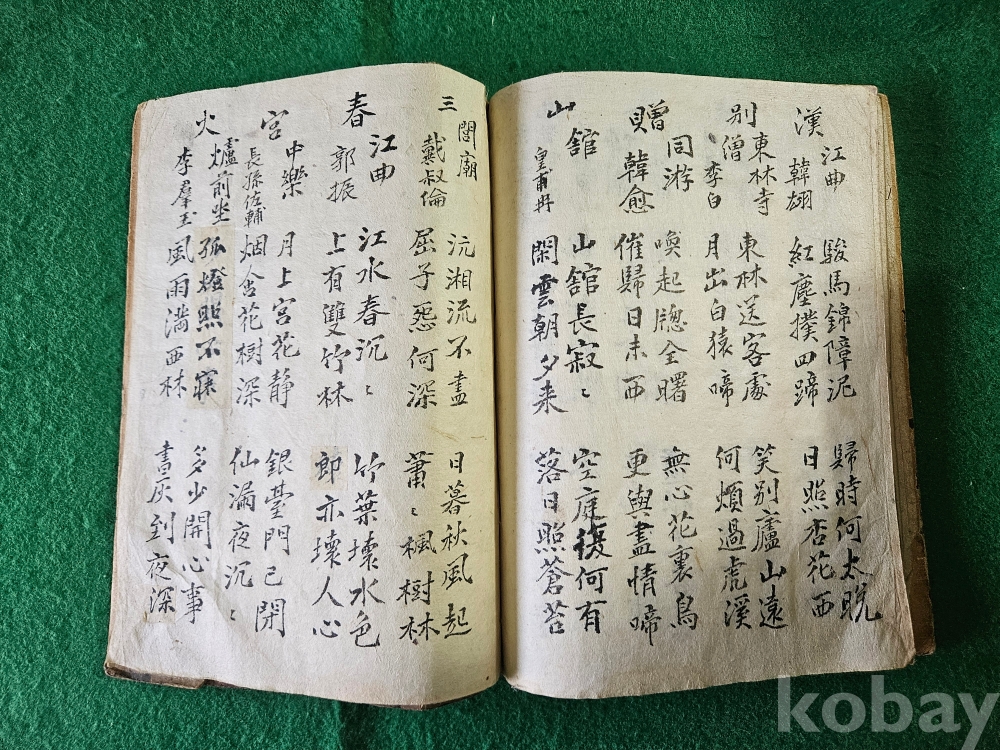 漢江曲
韓翃
駿馬錦障泥
紅塵撲四蹄
歸時何太晚
日照杏花西
別東林寺僧
李白
東林送客處
月出白猿啼
笑別廬山遠
何煩過虎溪
贈同游
韓愈
喚起牕全曙
催歸日未西
無心花裏鳥
更與盡情啼
山舘
皇甫冉
山舘長寂〻
閑雲朝夕来
空庭復何有
落日照蒼苔
三閭廟
戴叔倫
沅湘流不盡
屈子怨何深
日暮秋風起
蕭〻楓樹林
春江曲
郭振
江水春沉〻
上有雙竹林
竹葉壞水色
郎亦壞人心
宮中樂
長孫佐輔
月上宮花静
烟含花樹深
銀臺門已閉
仙漏夜沉〻
火爐前坐
李羣玉
孤燈照不寐
風雨満西林
多少開心事
書灰到夜深
kobay